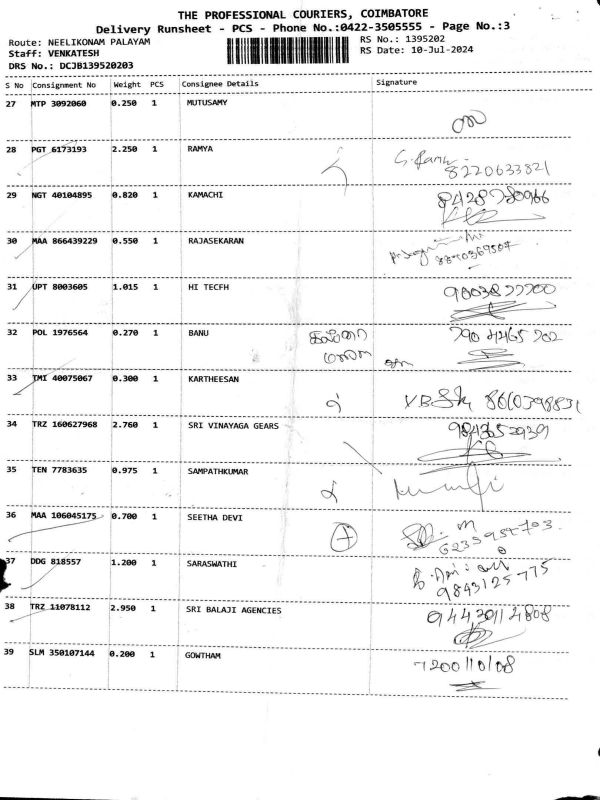 THE PROFESSIONAL COURIERS, COIMBATORE
Delivery Runsheet - PCS - Phone No.:0422-3505555 - Page No.:3
Route: NEELIKONAM PALAYAM RS No.: 1395202
Staff: VENKATESH RS Date: 10-Jul-2024
DRS No.: DCJB139520203
S No Consignment No Weight PCS Consignee Details Signature
27 MTP 3092060 0.250 1 MUTUSAMY
28 PGT 6173193 2.250 1 RAMYA
8220633821
29 NGT 40104895 0.820 1 KAMACHI
30 MAA 866439229 0.550 1 RAJASEKARAN
31 UPT 8003605 1.015 1 HI TECFH
32 POL 1976564 0.270 1 BANU
33 TMI 40075067 0.300 1 KARTHEESAN
8610398831
34 TRZ 160627968 2.760 1 SRI VINAYAGA GEARS
35 TEN 7783635 0.975 1 SAMPATHKUMAR
36 MAA 106045175 0.700 1 SEETHA DEVI
37 DDG 818557 1.200 1 SARASWATHI
9843125775
38 TRZ 11078112 2.950 1 SRI BALAJI AGENCIES
39 SLM 350107144 0.200 1 GOWTHAM
7200110108